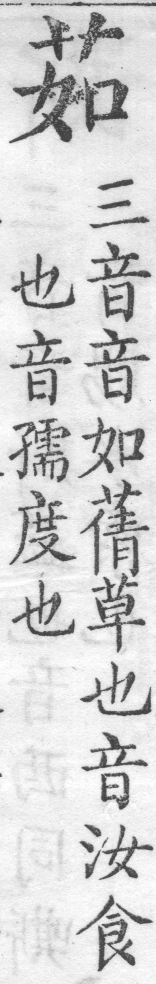 茹
三音音如蒨草也音汝食
也音孺度也